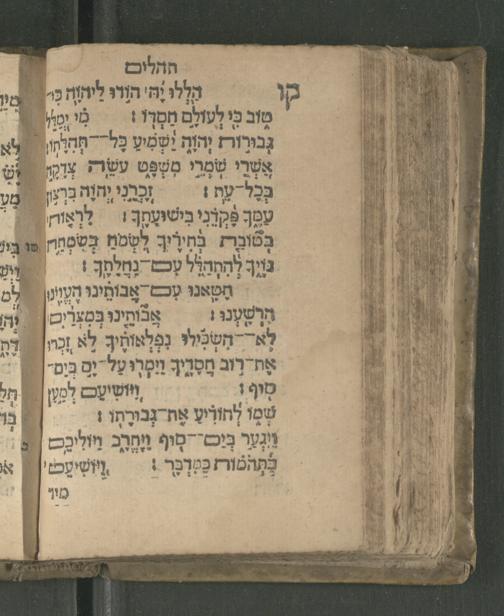 תהלים
קו
הַלְלוּ יָהּ הוֹדוּ לַיהוָֹה כִּי־
טוֹב כִּי לְעוֹלָם חַסְדּוֹ׃ מִי יְמַלֵּל
גְּבוּרוֹת יְהוָֹה יַשְׁמִיעַ כָּל־תְּהִלָּתוֹ׃
אַשְׁרֵי שֹׁמְרֵי מִשְׁפָּט עֹשֵׂה צְדָקָה
בְכָל־עֵת׃ זָכְרֵנִי יְהוָֹה בִּרְצוֹן
עַמֶּךָ פָּקְדֵנִי בִּישׁוּעָתֶךָ׃ לִרְאוֹת
בְּטוֹבַת בְּחִירֶיךָ לִשְׂמֹחַ בְּשִׂמְחַת
גּוֹיֶךָ לְהִתְהַלֵּל עִם־נַחֲלָתֶךָ׃
חָטָאנוּ עִם־אֲבוֹתֵינוּ הֶעֱוִינוּ
הִרְשָׁעְנוּ׃ אֲבוֹתֵינוּ בְמִצְרַיִם
לֹא־הִשְׂכִּילוּ נִפְלְאוֹתֶיךָ לֹא זָכְרוּ
אֶת־רוֹב חֲסָדֶיךָ וַיַּמְרוּ עַל־יָם בְּיַם־
סוּף׃ וַיּוֹשִׁיעֵם לְמַעַן
שְׁמוֹ לְהוֹדִיעַ אֶת־גְּבוּרָתוֹ׃
וַיִּגְעַר בְּיַם־סוּף וַיֶּחֱרָב וַיּוֹלִיכֵם
בַּתְּהֹמוֹת כַּמִּדְבָּר׃ וַיּוֹשִׁיעֵם
מִיַּד